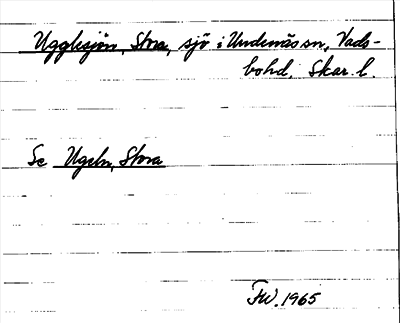 Ugglesjön, Stora, sjö i Undenäs sn, Vads-
bohd, Skar. l
Se Ugeln, Stora
FW. 1965